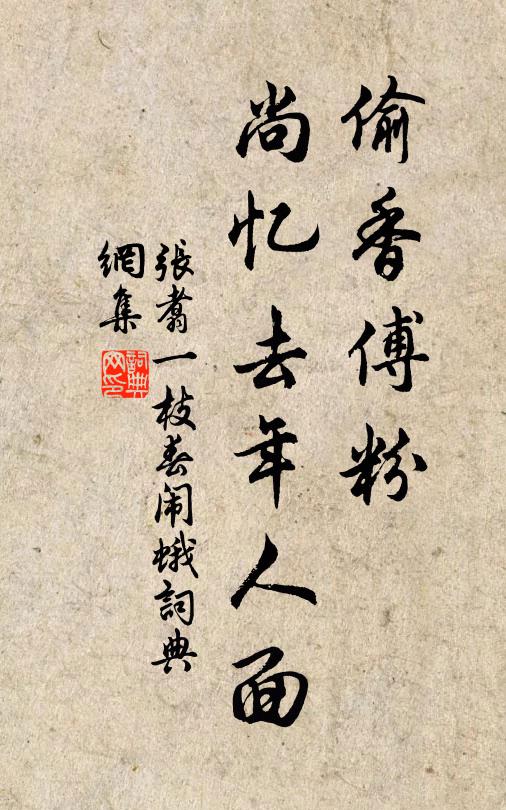 偷香傅粉
尚忆去年人面
張翥一枝春闹蛾詞典
網集
詞典
网印